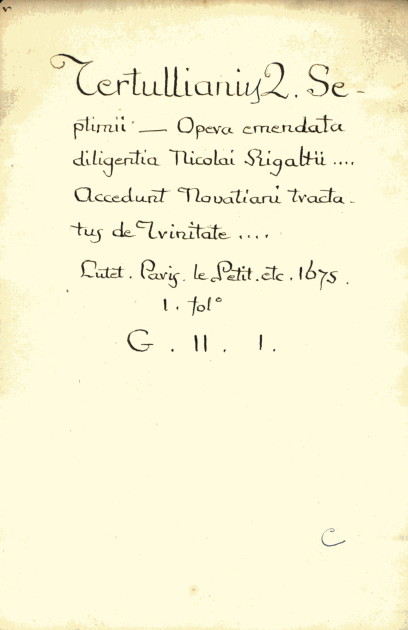 Tertullianus Q. Se-
ptimii — Opera emendata
diligentia Nicolai Rigaltii ....
Accedunt Novatiani tracta-
tus de Trinitate ....
Lutet. Paris. le Petit. etc. 1675.
1. folº
G. II. 1.
C